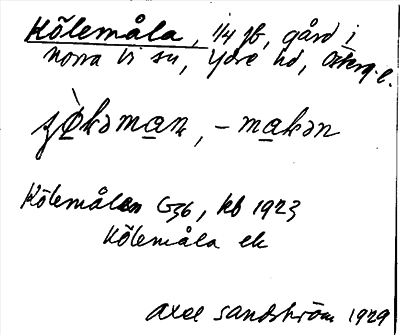 Kölemåla, 1/4 jb, gård i
Norra Vi sn, Ydre hd, Österg. l.
-makən
Kölemålen G36, kb 1923
Kölemåla ek
Axel Sandström 1929